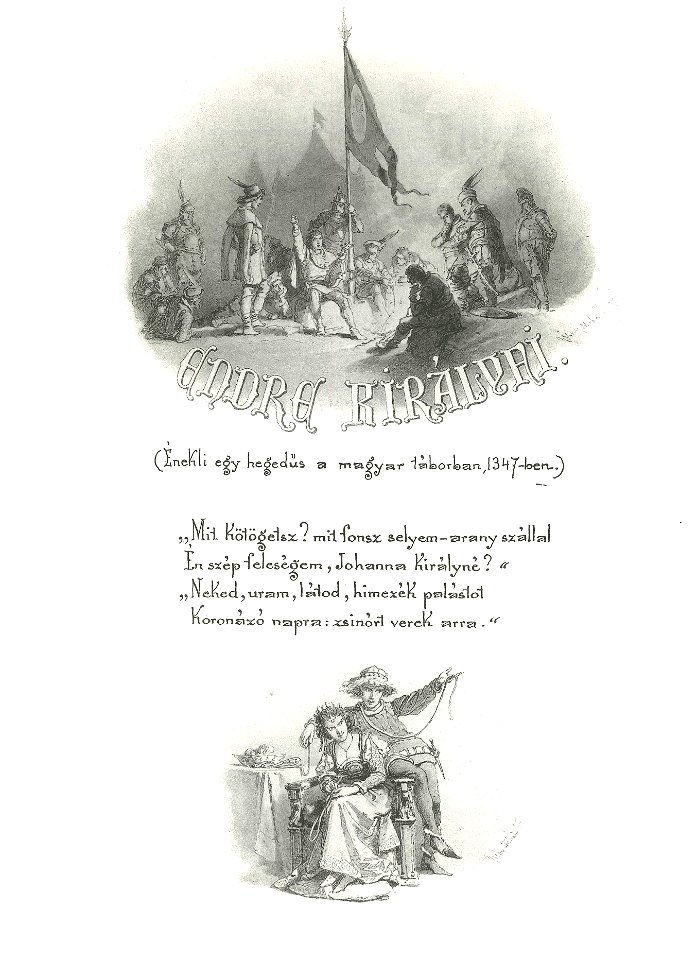 ENDRE KIRÁLYFI.
(Énekli egy hegedűs a magyar táborban, 1347-ben.)
„Mit kötögetsz? mit fonsz selyem-arany szállal
Én szép feleségem, Johanna királyné?“
„Neked, uram, látod, himezék palástot
Koronázó napra: zsinórt verek arra.“